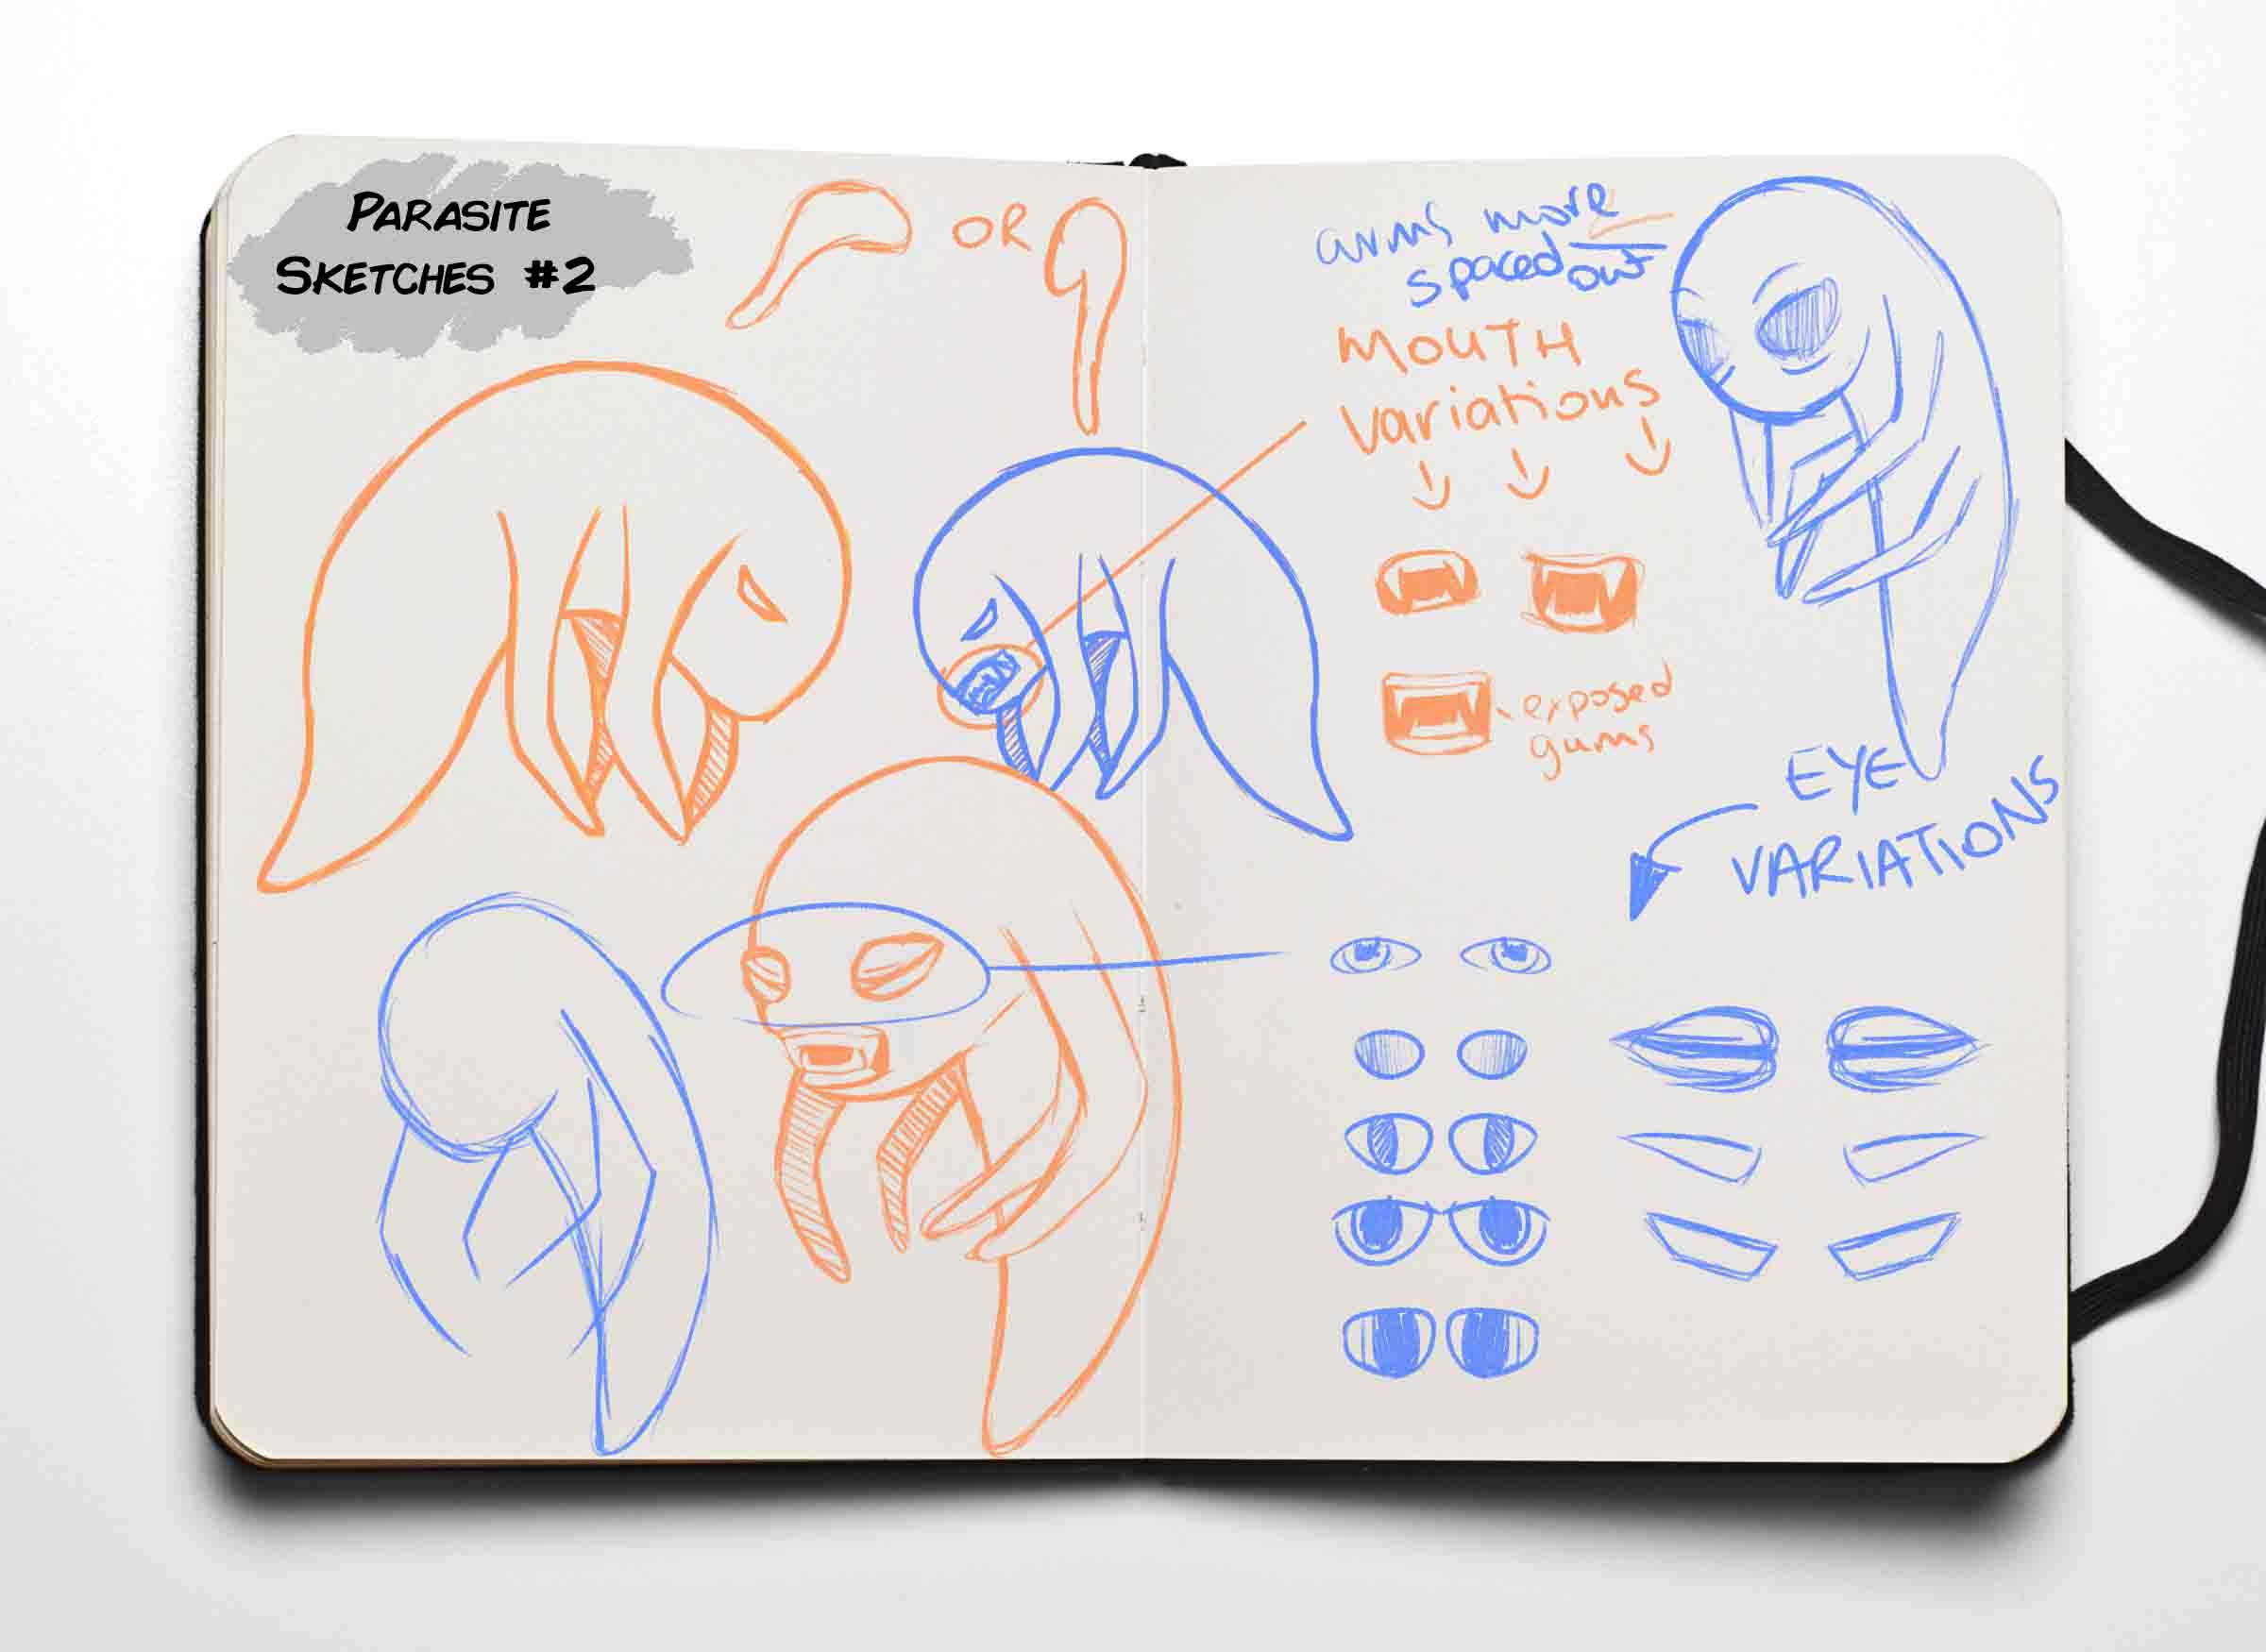 PARASITE
SKETCHES #2
OR
arms more
spaced out
MOUTH
variations
exposed
gums
EYE
VARIATIONS